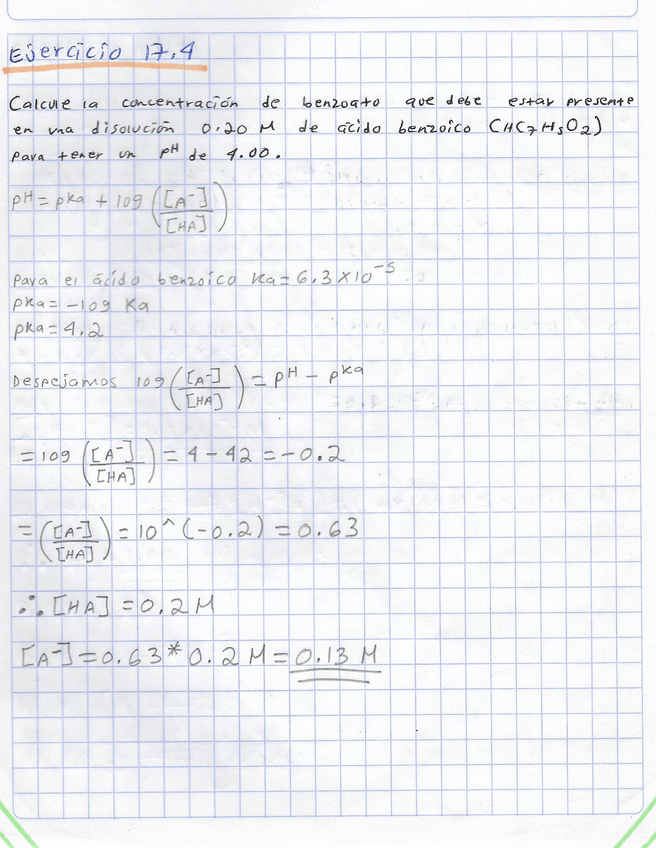 Ejercicio 17.4
Calcule la concentración de benzoato que debe estar presente
en una disolución 0.20 M de ácido benzoico (HC7H5O2)
para tener un pH de 4.00.
pH = pka + log ([A-]/[HA])
Para el ácido benzoico Ka = 6.3 x 10^-5
pka = -log Ka
pka = 4.2
Despejamos log ([A-]/[HA]) = pH - pka
= log ([A-]/[HA]) = 4 - 42 = -0.2
= ([A-]/[HA]) = 10^(-0.2) = 0.63
∴ [HA] = 0.2 M
[A-] = 0.63 * 0.2 M = 0.13 M